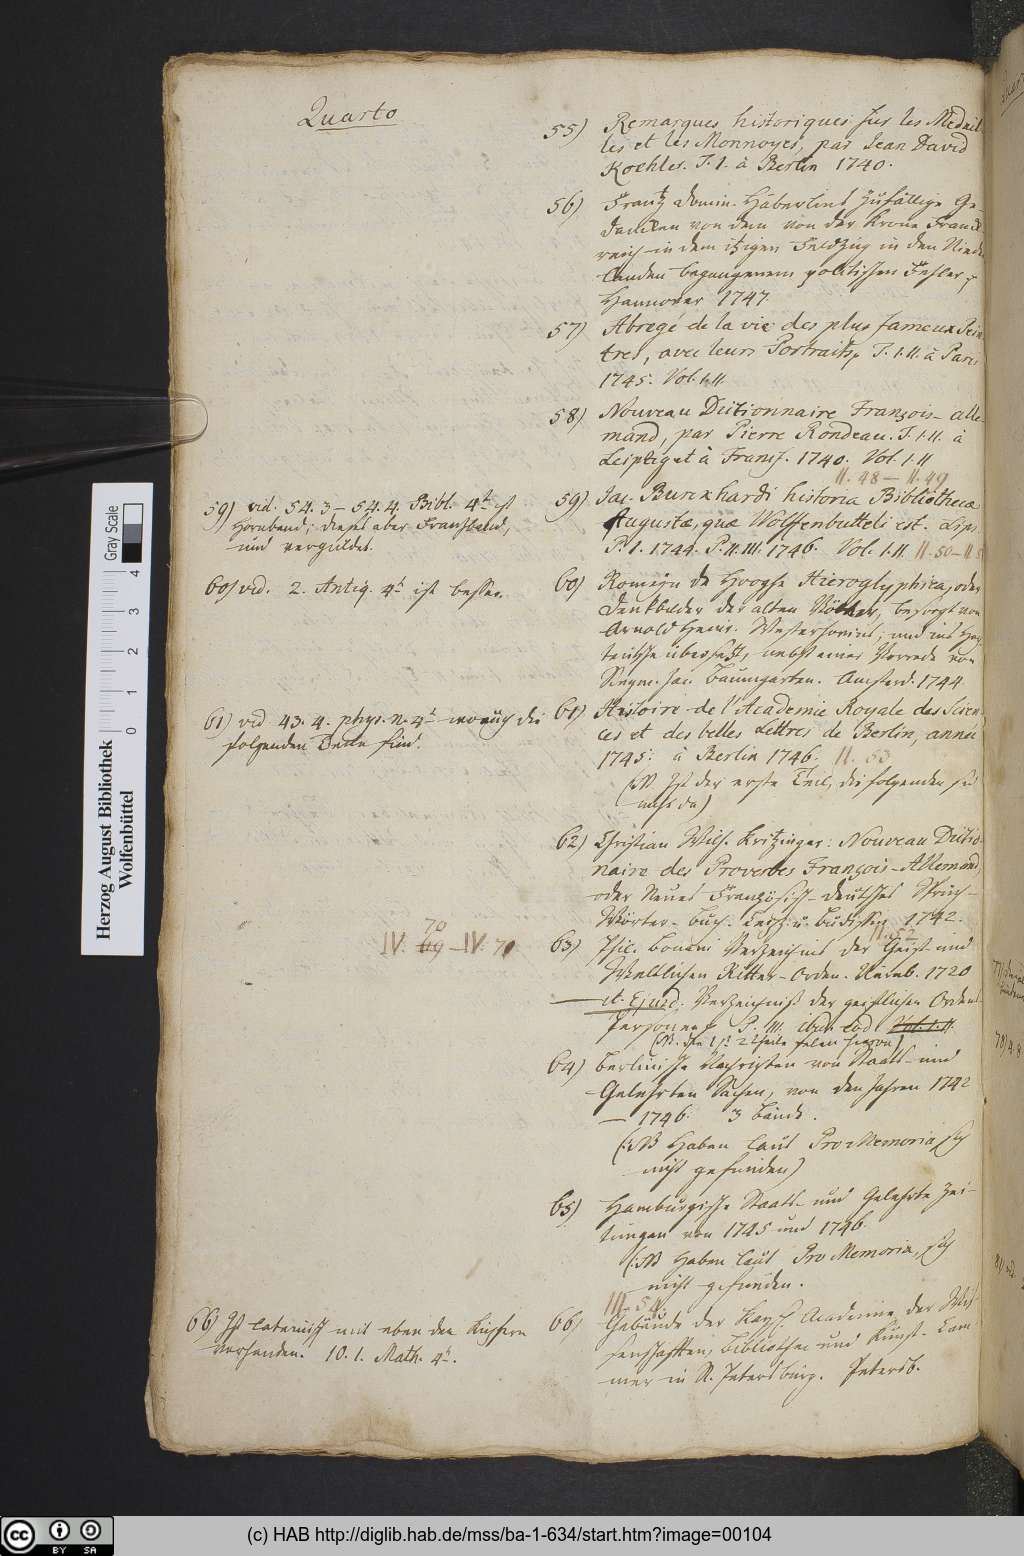 Quarto
55) Remarques historiques sur les Medail-
les et les Monnoyes, par Jean David
Koehler. T. I. à Berlin 1740.
56) Frantz Domin. Häberlins zufällige Ge-
dancken von dem von der Krone Franck-
reich in dem itzigen Feldzug in den Nieder
landen begangenen politischen Fehler,
Hannover 1747.
57) Abregé de la vie des plus fameux Pein
tres, avec leurs Portraits, T. I. II. à Paris
1745. Vol. I. II
58) Nouveau Dictionnaire François-alle-
mand, par Pierre Rondeau. T. I. II. à
Leipzig et à Francf. 1740. Vol. I. II
II. 48 — II. 49
59) vid. 54. 3 — 54. 4. Bibl. 4t. ist
Hornband; dieses aber Franzband,
und verguldet.
59) Jac. Burckhardi historia Bibliothecæ
Augustæ, quæ Wolffenbutteli est. Lips.
P. I. 1744. P. II. III. 1746. Vol. I. II. II. 50 – II. 5
60) vid. 2. Antiq. 4t. ist besser.
60) Romeyn de Hooghe Hieroglyphica, oder
Denkbilder der alten Völcker, besorgt von
Arnold Henr. Westerhovius, und ins Hoch
teutsche übersetzt, nebst einer Vorrede von
Siegm. Jac. Baumgarten. Amsterd. 1744
61) vid 43. 4. phys. n. 4t. wo auch die
folgenden Teile sind.
61) Histoire de l'Academie Royale des Scien-
ces et des belles Lettres de Berlin, année
1745. à Berlin 1746. II. 53
(NB Ist der erste Teil, die folgenden sind
nicht da)
62) Christian Wilh. Kritzinger: Nouveau Dictio-
naire des Proverbes François-Allemand,
oder Neues Französisch-deutsches Sprich-
Wörter-Buch. Leipz. u. Budissin 1742.
II. 52
IV. 69 70 – IV. 71
63) Phil. Bonani Verzeichnis der Geist- und
Weltlichen Ritter-Orden. Nürnb. 1720
— it. Ejusd. Verzeichniß der geistlichen Ordens-
Personen P. III. ibid. eod. Vol. I. II.
(NB. die 1 st. 2 Theile fehlen hievon)
64) Berlinische Nachrichten von Staats- und
Gelehrten Sachen, von den Jahren 1742
— 1746. 3 Bände.
(:NB Haben laut Pro Memoria sich
nicht gefunden)
65) Hamburgische Staats- und Gelehrte Zei-
tungen von 1745 und 1746.
(:NB Haben laut Pro Memoria, sich
nicht gefunden.
III. 54.
66) Ist lateinisch mit eben den Kupfern
vorhanden. 10. 1. Math. 4t.
66) Gebäude der Kays. Academie der Wis
senschafften, Bibliothec und Kunst-Cam
mer in St. Petersburg. Petersb.
Herzog August Bibliothek
Wolfenbüttel
Gray Scale
0 1 2 3 4
(c) HAB http://diglib.hab.de/mss/ba-1-634/start.htm?image=00104
cc BY SA